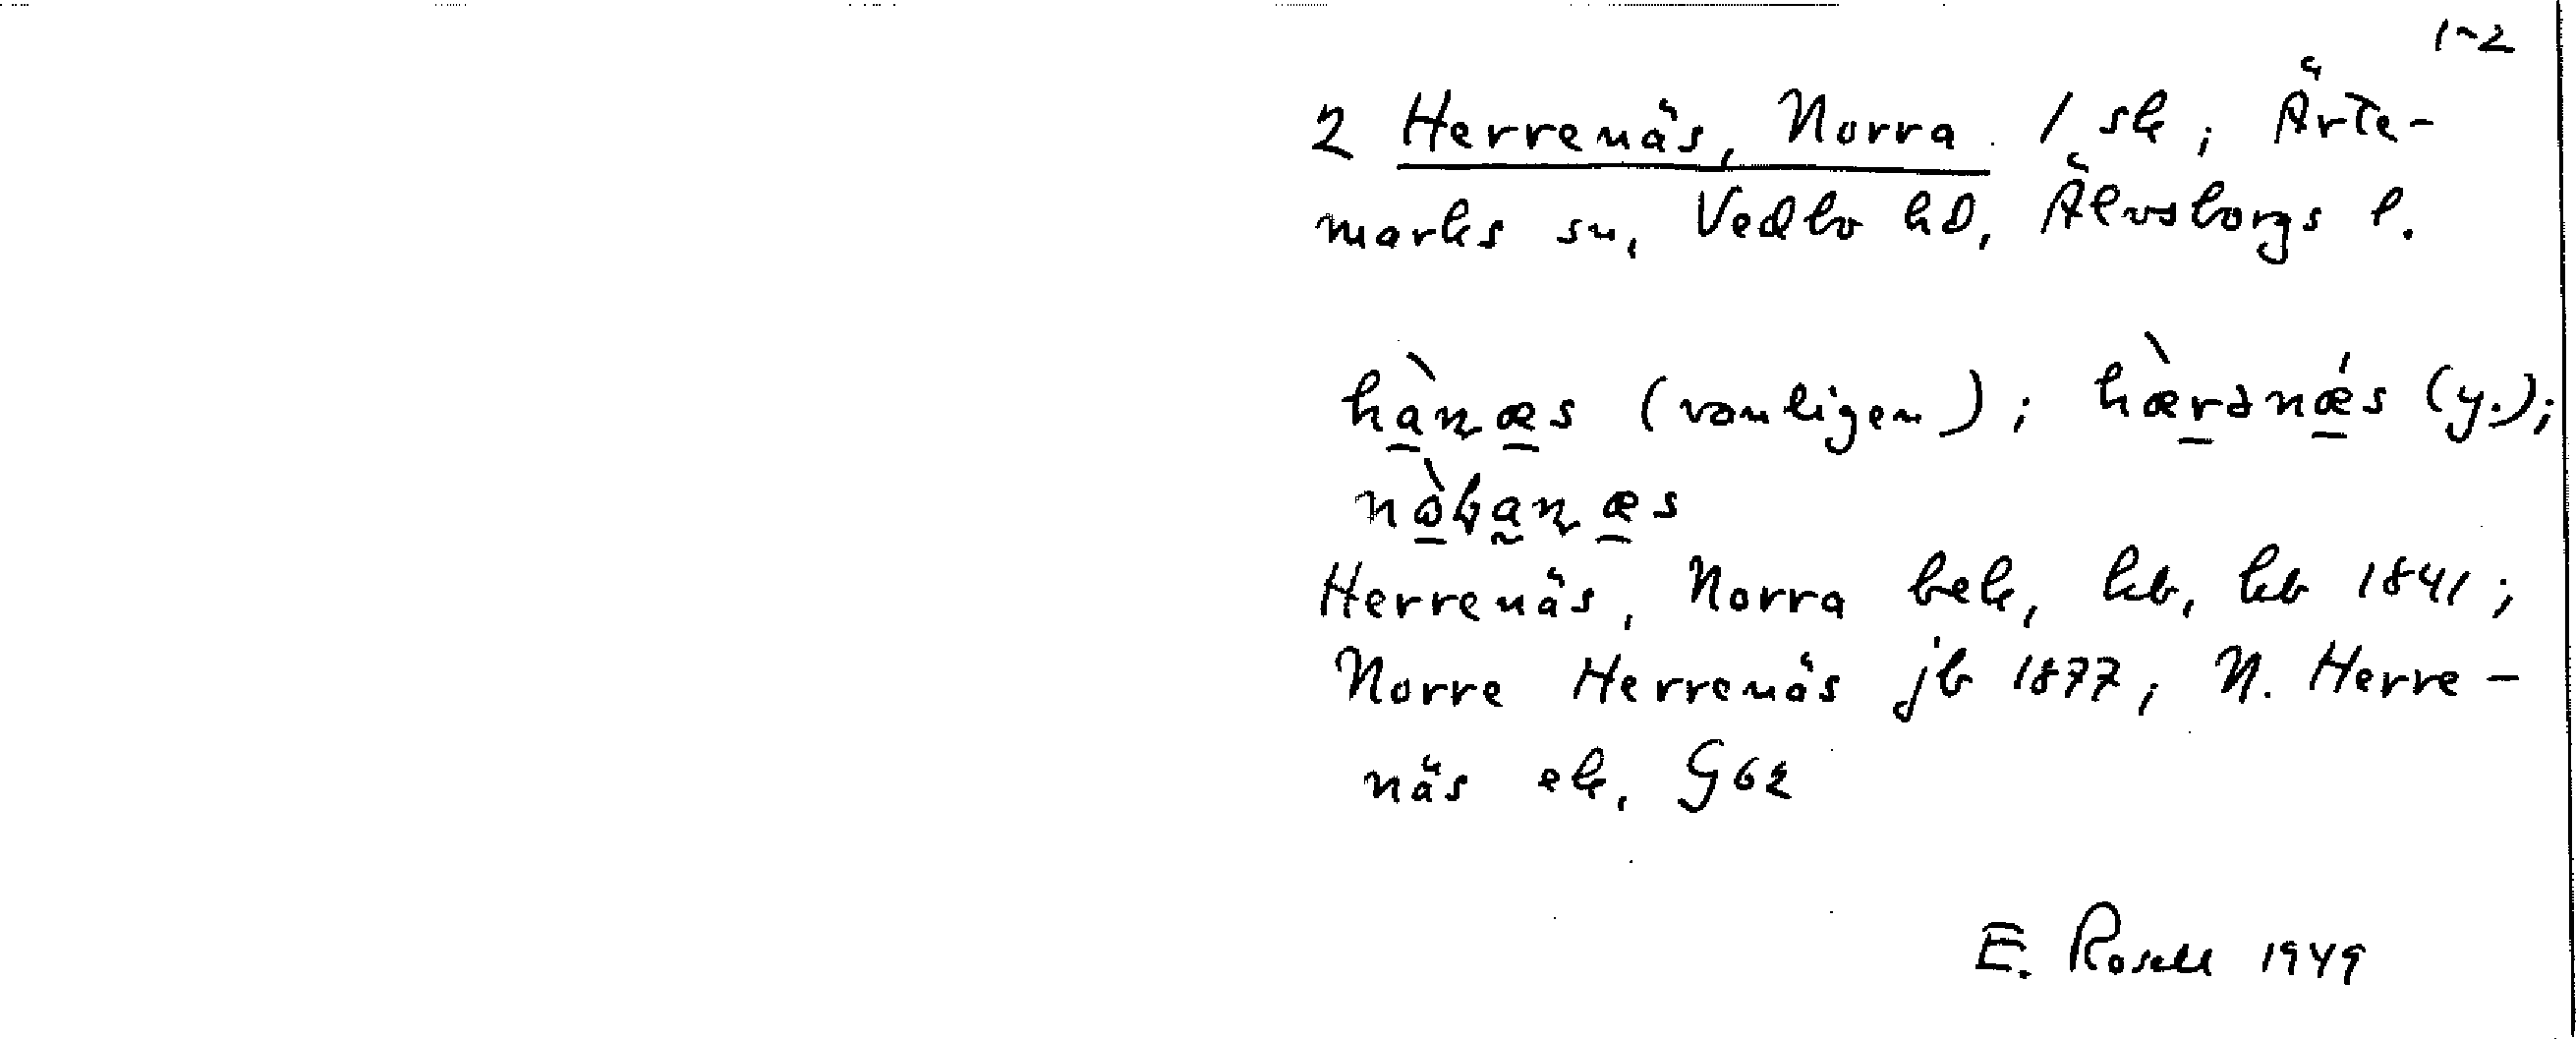 1-2
2 Herrenäs, Norra 1 sk; Ärte-
marks sn, Vedbo hd, Älvsborgs l.
hàn̨æs (vanligen); hæ̀rənǽs (y.);
nòb̨an̨æs
Herrenäs, Norra bek, kb, kb 1841;
Norre Herrenäs jb 1877; N. Herre-
näs ek, G62
E. Rosell 1949